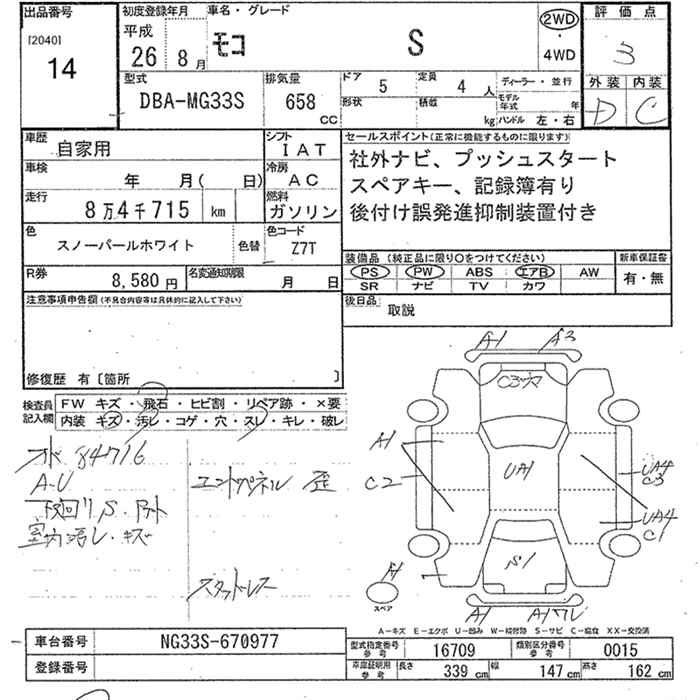 出品番号 初度登録年月 車名・グレード 評価点
[2040] 平成 2WD
14 26 8月 モコ S 4WD 3
外装 内装
型式 排気量 ドア 5 定員 4人 ディーラー・並行 D C
DBA-MG33S 658 cc 形状 積載 kg モデル年式 年
ハンドル 左・右
車歴 シフト セールスポイント(正常に機能するものに限ります)
自家用 IAT 社外ナビ、プッシュスタート
車検 年 月( 日) 冷房 AC スペアキー、記録簿有り
走行 8万4千715 km 燃料 ガソリン 後付け誤発進抑制装置付き
色 スノーパールホワイト 色替 色コード Z7T
装備品(純正品に限り○をつけてください) 新車保証書
R券 8,580円 名変通知期限 月 日 PS PW ABS エアB AW 有・無
SR ナビ TV カワ
注意事項申告欄(不具合内容等は具体的に記入して下さい) 後日品 取説
修復歴 有〔箇所 〕
検査員記入欄 FW キズ・飛石・ヒビ割・リペア跡・×要
内装 キズ・汚レ・コゲ・穴・スレ・キレ・破レ
A1 A3
C3
84716
A1
C2
UA1
UA4
C3
A-U
下回りS・
エンドパネル 歪
室内汚レ・キズ
UA4
C1
S1
スタッドレス
スペア
A1 A1ワレ
A-キズ E-エクボ U-凹み W-補修跡 S-サビ C-腐食 XX-交換済
車台番号 NG33S-670977 型式指定番号 参考 16709 類別区分番号 参考 0015
登録番号 車庫証明用 参考 長さ 339cm 幅 147cm 高さ 162cm